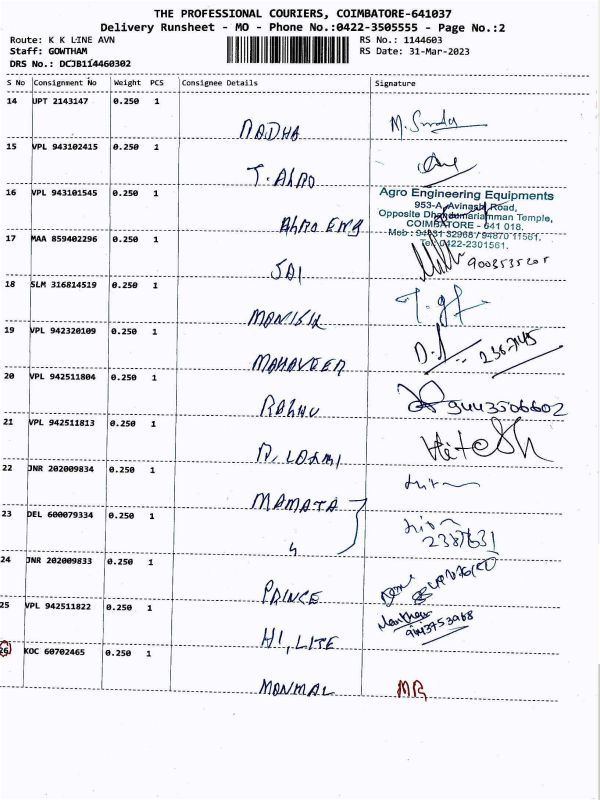 THE PROFESSIONAL COURIERS, COIMBATORE-641037
Delivery Runsheet - MO - Phone No.:0422-3505555 - Page No.:2
Route: K K LINE AVN
RS No.: 1144603
Staff: GOWTHAM
RS Date: 31-Mar-2023
DRS No.: DCJB114460302
S No Consignment No Weight PCS Consignee Details Signature
14 UPT 2143147 0.250 1
RADHA
15 VPL 943102415 0.250 1
T. AGRO
16 VPL 943101545 0.250 1
AGRO ENG
Agro Engineering Equipments
953-A, Avinashi Road,
Opposite Dhandumariamman Temple,
COIMBATORE - 641 018.
Tel: 0422-2301561.
17 MAA 859402296 0.250 1
SAI
18 SLM 316814519 0.250 1
MANISH
19 VPL 942320109 0.250 1
MAHAVEER
20 VPL 942511804 0.250 1
RAGHU 9443506602
21 VPL 942511813 0.250 1
Hitesh
22 JNR 202009834 0.250 1
MAMATA
23 DEL 600079334 0.250 1
24 JNR 202009833 0.250 1
PRINCE
25 VPL 942511822 0.250 1
HI, LITE
26 KOC 60702465 0.250 1
MR